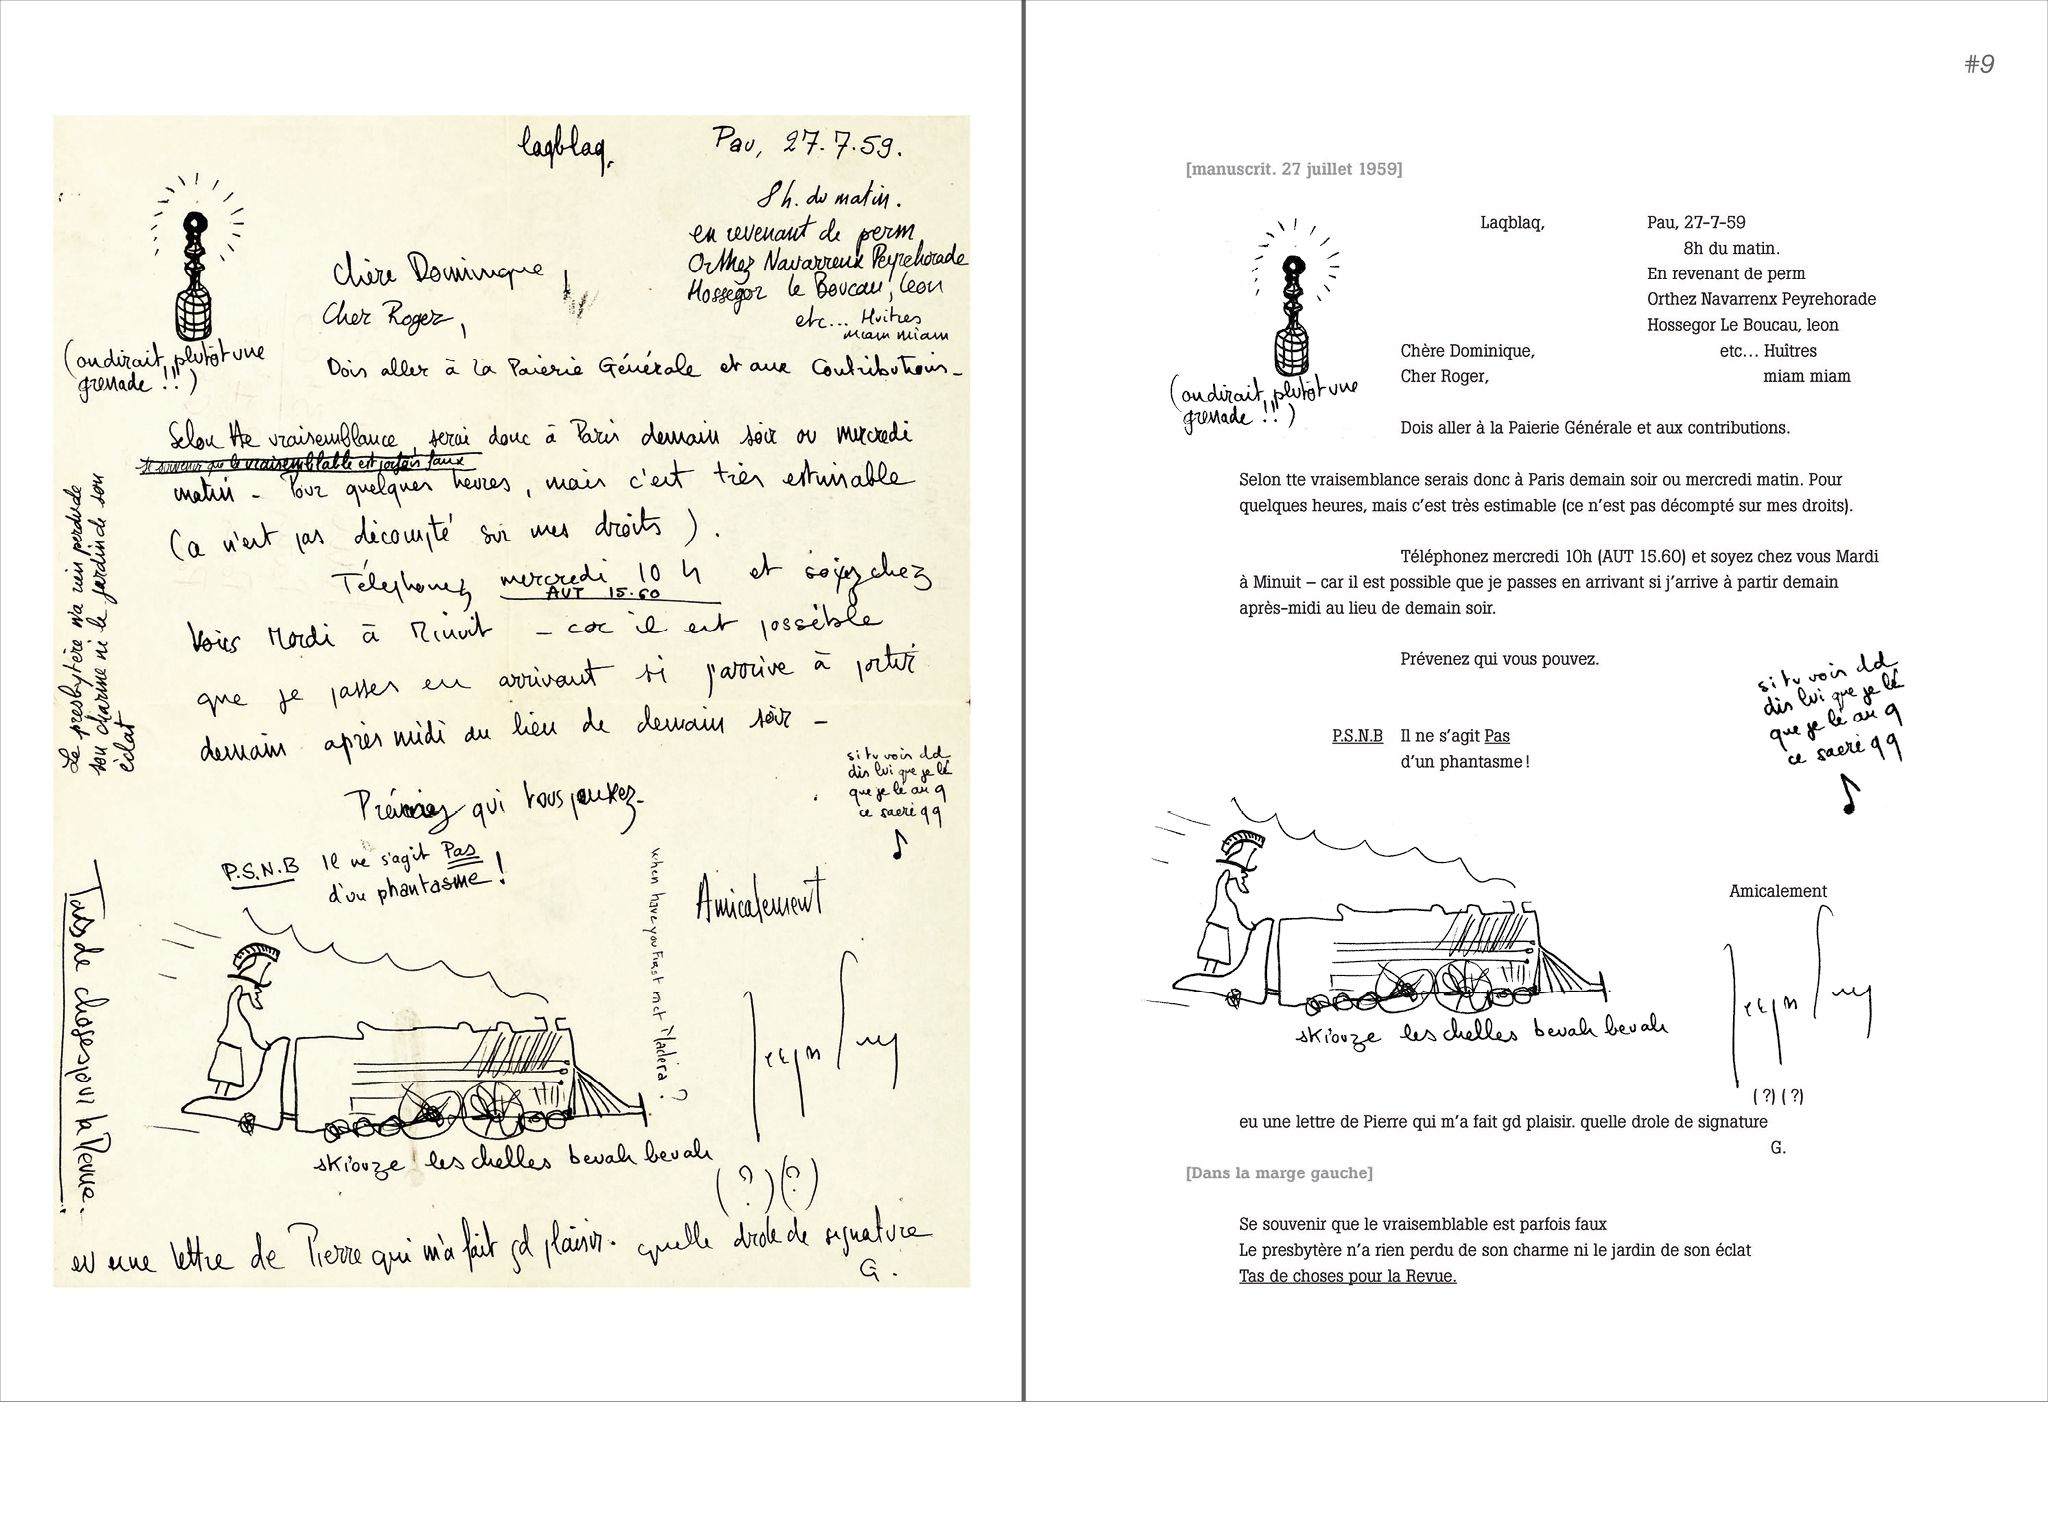 laqblaq,
Pau, 27.7.59.
8 h. du matin.
en revenant de perm
Orthez Navarrenx Peyrehorade
Hossegor le Boucau, leon
etc... Huitres
miam miam
Chère Dominique,
Cher Roger,
(on dirait plutôt une
grenade !!)
Dois aller à la Paierie Générale et aux Contributions_
Selon tte vraisemblance, serai donc à Paris demain soir ou mercredi
se souvenir que le vraisemblable est parfois faux
matin - Pour quelques heures, mais c'est très estimable
(a n'est pas décompté sur mes droits).
Téléphonez mercredi 10 h et soyez chez
AUT 15.60
vous Mardi à Minuit - car il est possible
que je passes en arrivant si j'arrive à partir
demain après midi au lieu de demain soir -
Prévenez qui vous pouvez-
si tu voir dd
dis lui que je lé
que je lé au q
ce sacré qq
P.S.N.B Il ne s'agit Pas
d'un phantasme !
Amicalement
when have you first met Madeira ?
skiouze les chelles bevah bevah
(?)(?)
eu une lettre de Pierre qui m'a fait gd plaisir. quelle drole de signature
G.
Le presbytère n'a rien perdu de
son charme ni le jardin de son
éclat
Tas de choses pour la Revue.
#9
[manuscrit. 27 juillet 1959]
Laqblaq,
Pau, 27-7-59
8h du matin.
En revenant de perm
Orthez Navarrenx Peyrehorade
Hossegor Le Boucau, leon
etc... Huîtres
miam miam
(on dirait plutôt une
grenade !!)
Chère Dominique,
Cher Roger,
Dois aller à la Paierie Générale et aux contributions.
Selon tte vraisemblance serais donc à Paris demain soir ou mercredi matin. Pour
quelques heures, mais c'est très estimable (ce n'est pas décompté sur mes droits).
Téléphonez mercredi 10h (AUT 15.60) et soyez chez vous Mardi
à Minuit – car il est possible que je passes en arrivant si j'arrive à partir demain
après-midi au lieu de demain soir.
Prévenez qui vous pouvez.
si tu voir dd
dis lui que je lé
que je lé au q
ce sacré qq
P.S.N.B Il ne s'agit Pas
d'un phantasme !
Amicalement
skiouze les chelles bevah bevah
(?) (?)
eu une lettre de Pierre qui m'a fait gd plaisir. quelle drole de signature
G.
[Dans la marge gauche]
Se souvenir que le vraisemblable est parfois faux
Le presbytère n'a rien perdu de son charme ni le jardin de son éclat
Tas de choses pour la Revue.